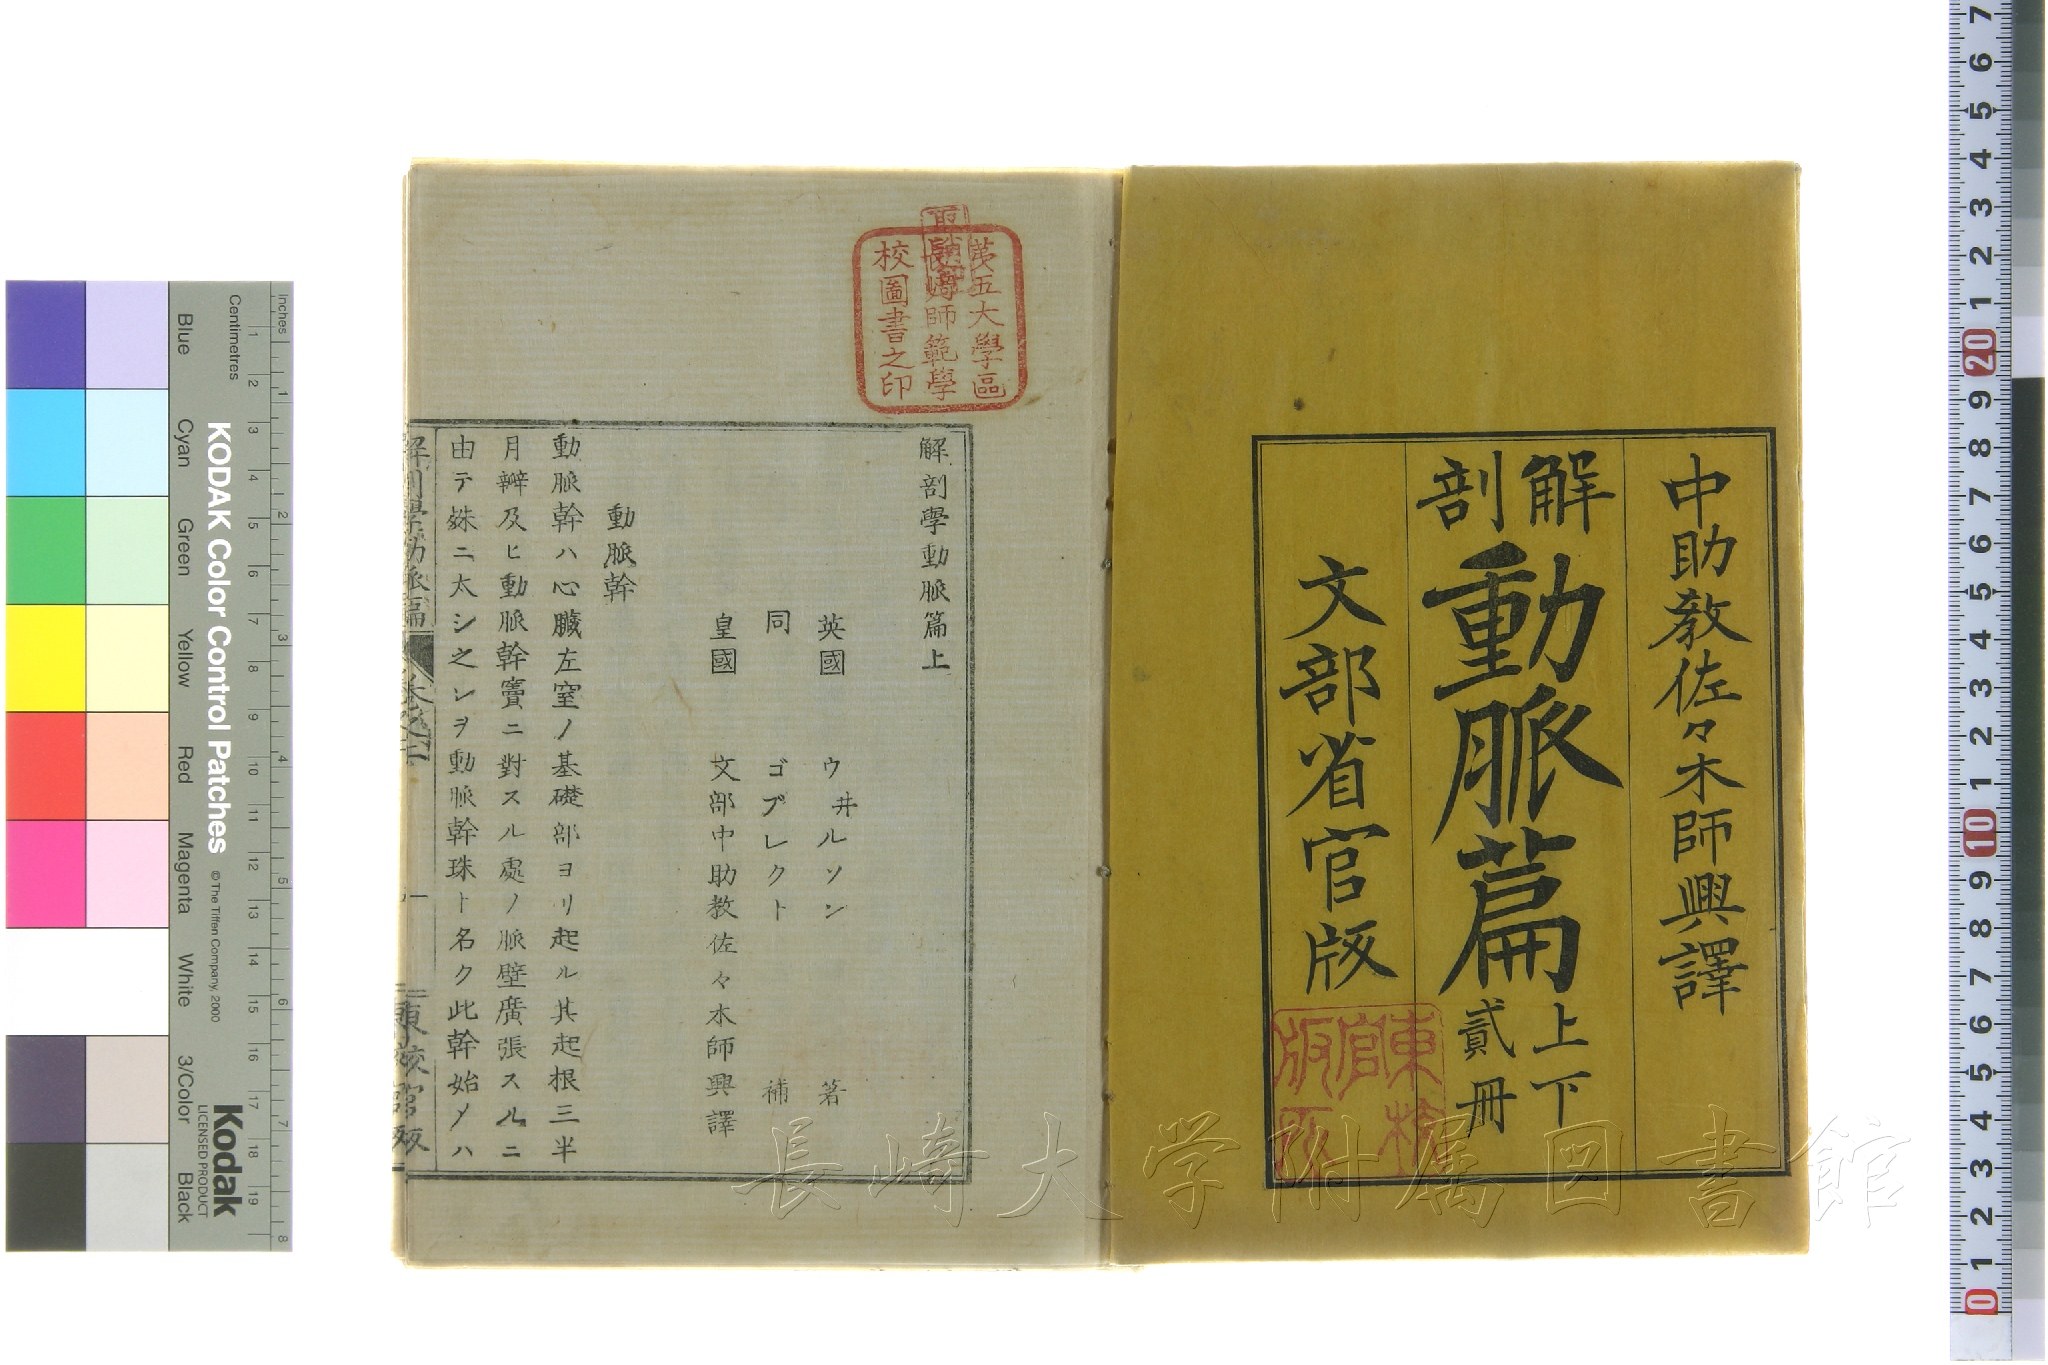 中助教佐々木師興譯
解剖
動脈篇
上下
貳冊
文部省官版
東校
官
版
第五大學區
長崎師範學
校圖書之印
解剖學動脈篇上
英國 ウ井ルソン 著
同 ゴブレクト 補
皇國 文部中助教佐々木師興譯
動脈幹
動脈幹ハ心臓左室ノ基礎部ヨリ起ル其起根三半
月瓣及ヒ動脈幹竇ニ對スル處ノ脈壁廣張スルニ
由テ姝ニ太シ之レヲ動脈幹珠ト名ク此幹始メハ
長崎大学附属図書館
inches
Centimetres
KODAK Color Control Patches
© The Tiffen Company, 2000
Kodak
LICENSED PRODUCT
Blue
Cyan
Green
Yellow
Red
Magenta
White
3/Color
Black